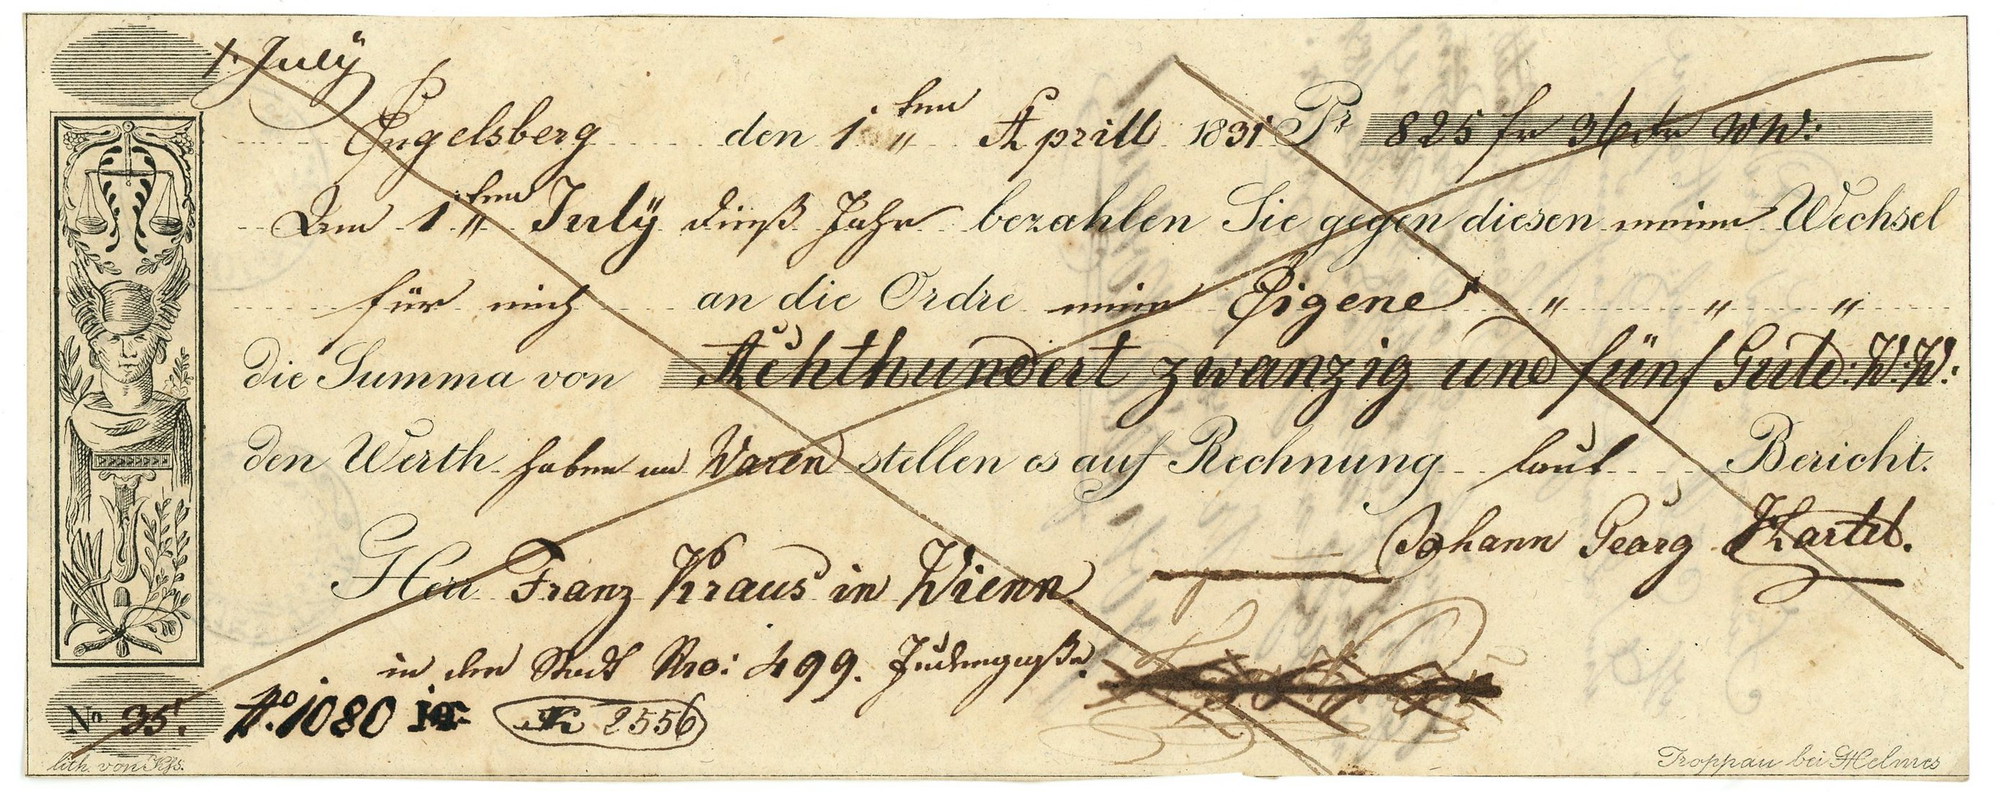 1. July
Engelsberg den 1 ten Aprill 1831 Pr 825 fr WW:
Am 1 ten July dieß Jahr bezahlen Sie gegen diesen meinen Wechsel
für mich an die Ordre meine Eigene " " "
die Summa von Achthundert zwanzig und fünf Guld: W:W:
den Werth haben in Waren stellen es auf Rechnung laut Bericht.
Johann Georg
Herr Franz Kraus in Wienn
in der Stadt Nro: 499. Judengaße.
No 35. 1080 2556
lith. von
Troppau bei